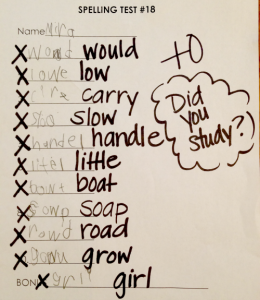 SPELLING TEST #18
Name Mira
+0
X would
X lowe low
X carry
X slo slow
X handel handle
X littel little
X bowt boat
X sowp soap
X rowd road
X grow
Did
you
study?
BON X gril girl